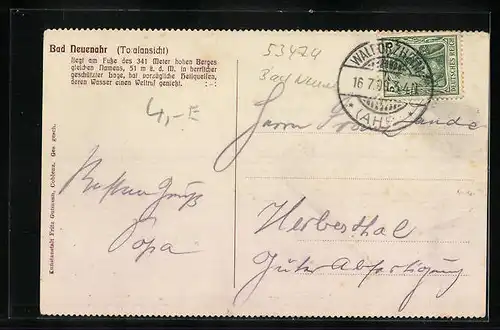 Bad Neuenahr (Totalansicht)
liegt am Fuße des 341 Meter hohen Berges
gleichen Namens, 51 m ü. d. M. in herrlicher
geschützter Lage, hat vorzügliche Heilquellen,
deren Wasser einen Weltruf genießt.
53474
Bad Neuen
4,-E
WALPORZHEIM
16.7.
(AHR)
DEUTSCHES REICH
Herrn
Herbesthal
Güter Abfertigung
Besten Gruß
Papa
Kunstanstalt Fritz Gutmann, Coblenz. Ges. gesch.